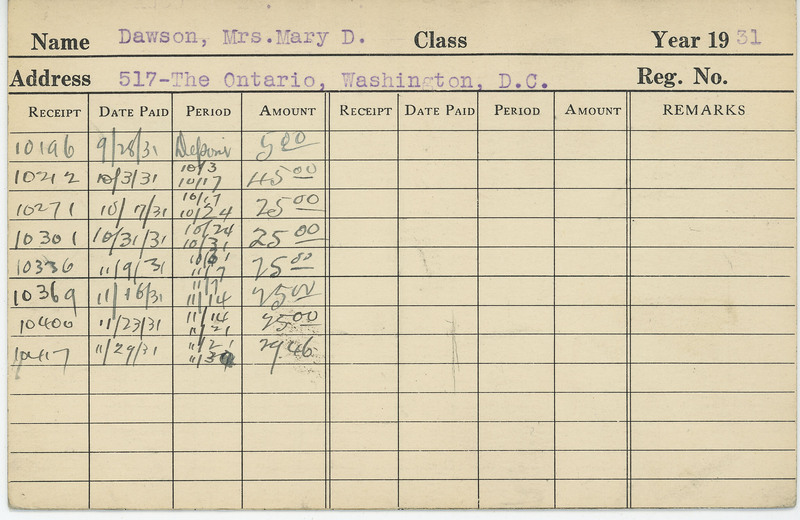 Name Dawson, Mrs.Mary D. Class Year 1931
Address 517-The Ontario, Washington, D.C. Reg. No.
RECEIPT DATE PAID PERIOD AMOUNT RECEIPT DATE PAID PERIOD AMOUNT REMARKS
10196 9/28/31 Deposit 5.00
10212 10/3/31 10/3 10/17 45.00
10271 10/17/31 10/17 10/24 25.00
10301 10/31/31 10/24 10/31 25.00
10336 11/9/31 10/31 11/7 25.00
10369 11/16/31 11/7 11/14 25.00
10400 11/23/31 11/14 11/21 25.00
10417 11/29/31 11/21 29.46